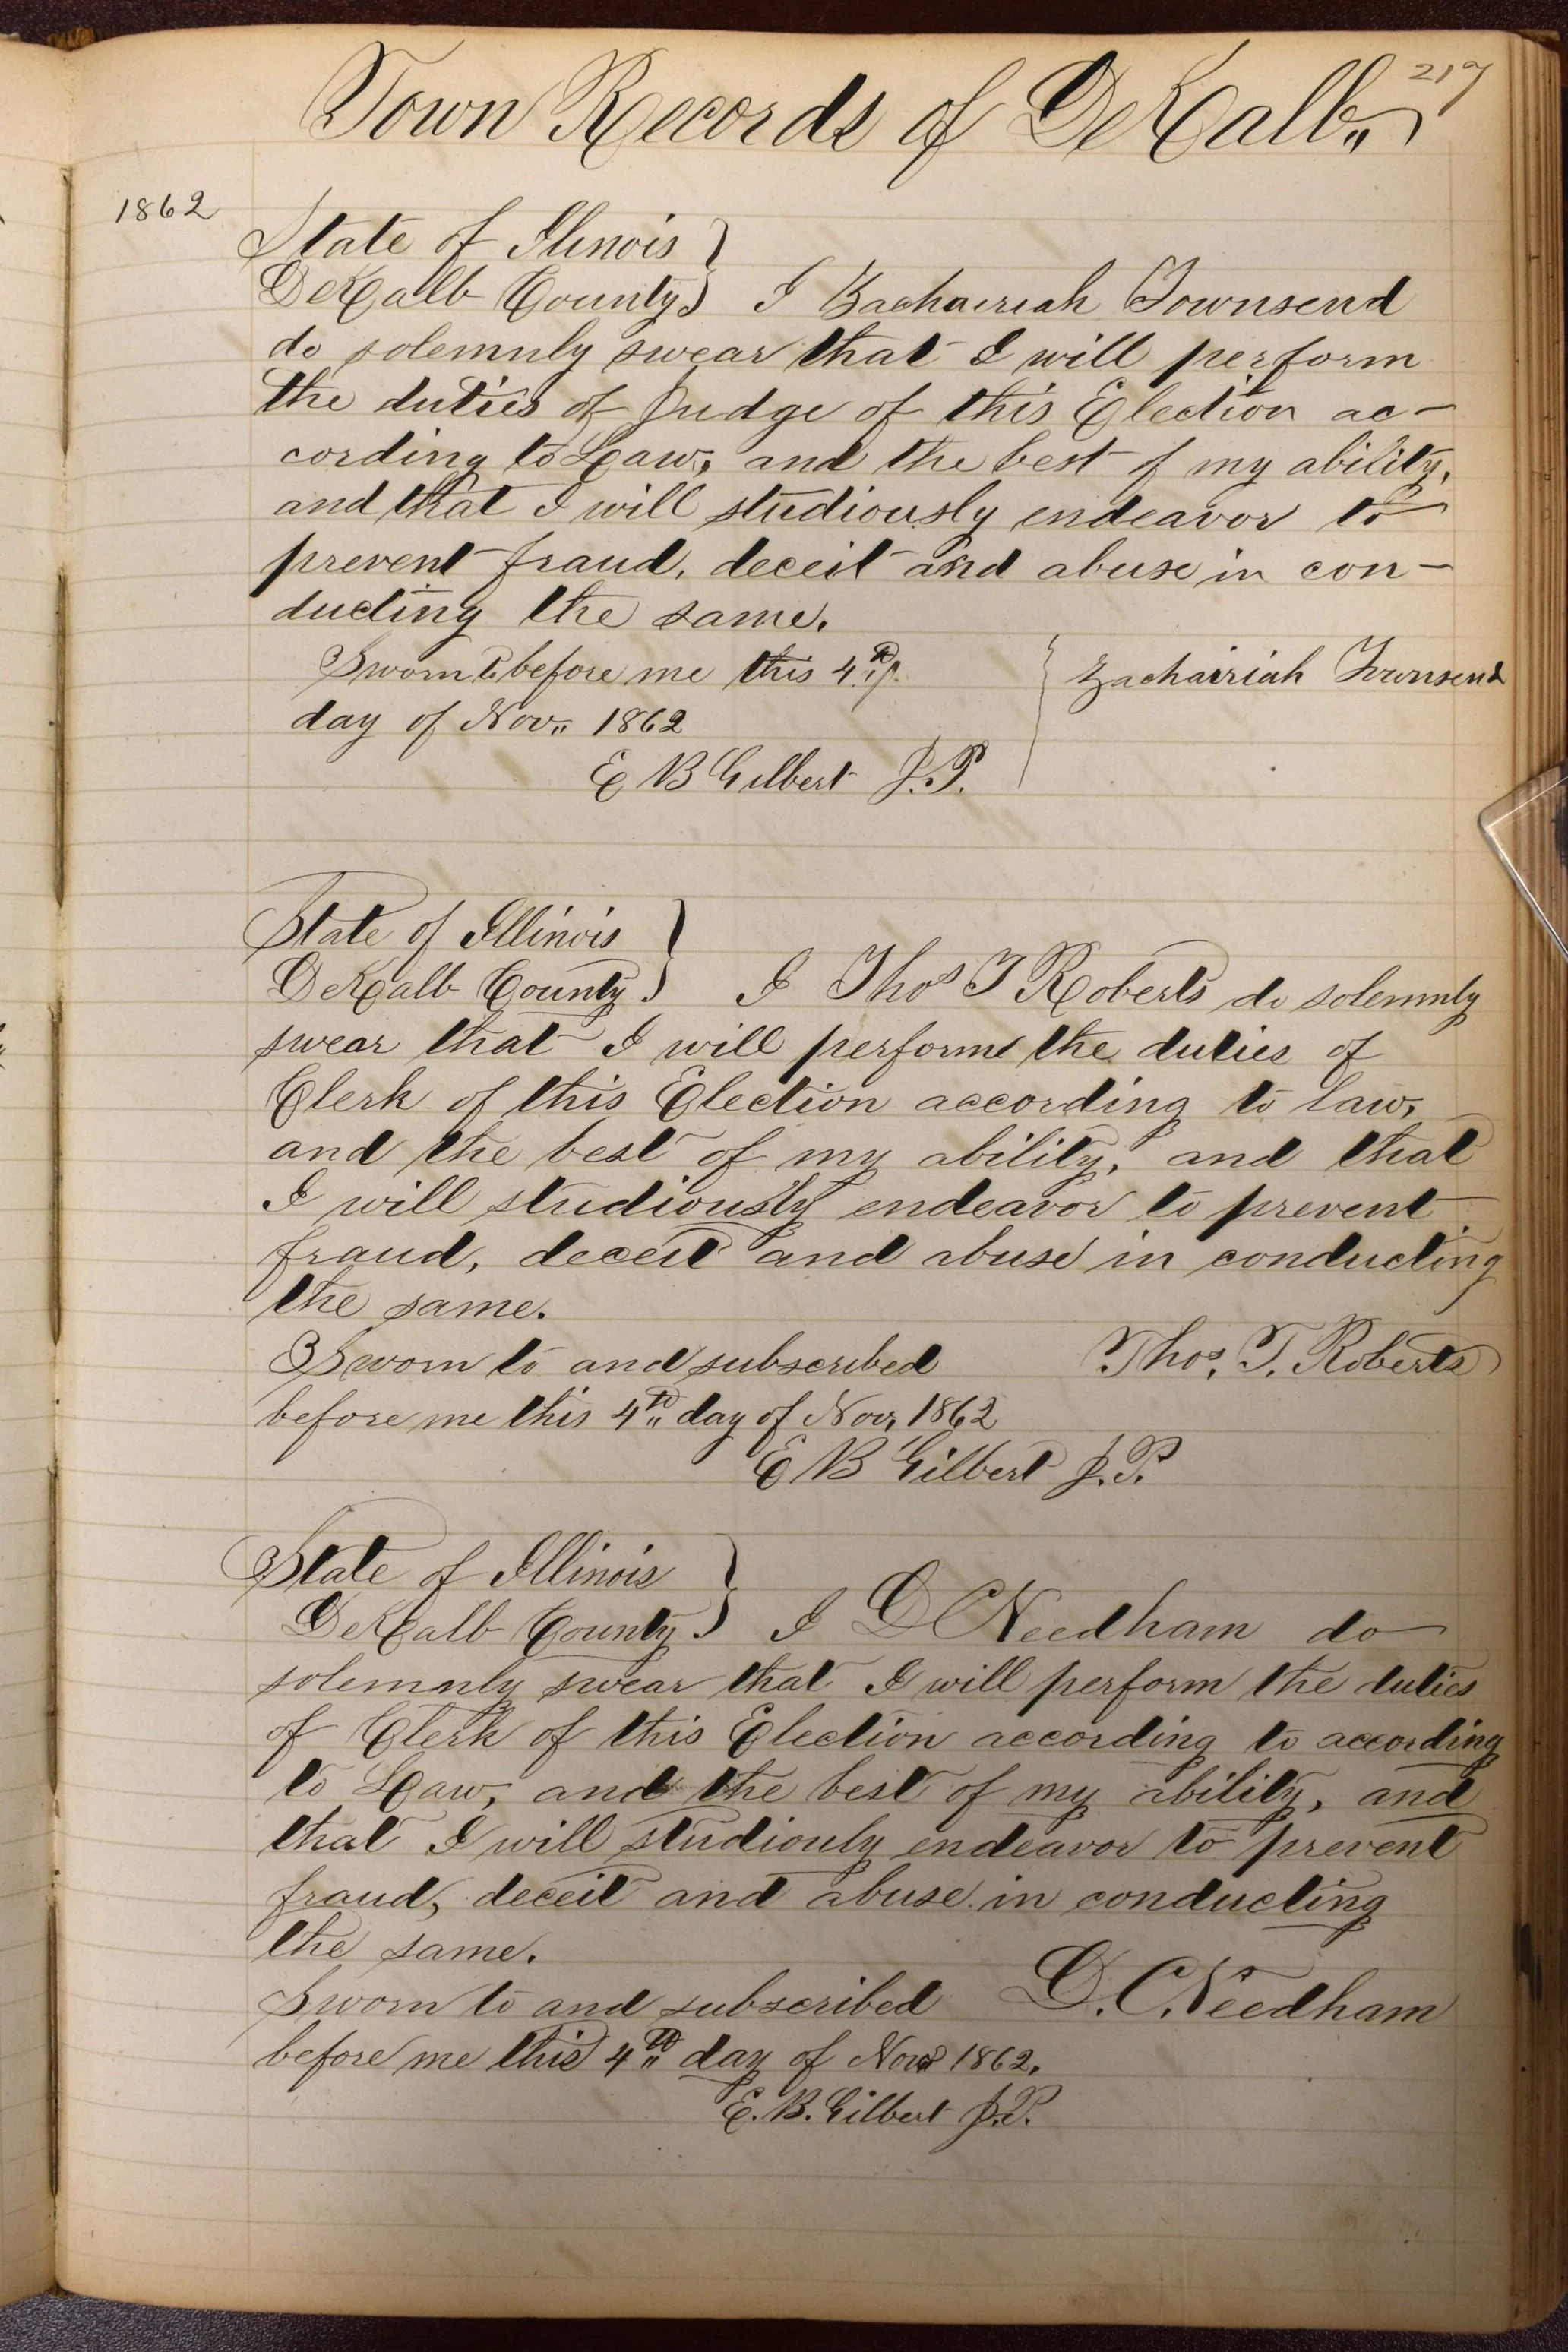 217
Town Records of DeKalb,,
1862
State of Ilinois }
DeKalb County } I Zachairiah Townsend
do solemnly swear that I will perform
the duties of Judge of this Election ac-
cording to Law, and the best of my ability,
and that I will studiously endeavor to
prevent fraud, deceit and abuse in con-
ducting the same.
Sworn to before me this 4th } Zachairiah Townsend
day of Nov,, 1862
E B Gilbert J.P.
State of Illinois }
DeKalb County } I Thos T Roberts do solemnly
swear that I will perform the duties of
Clerk of this Election according to law,
and the best of my ability, and that
I will studiously endeavor to prevent
fraud, deceit and abuse in conducting
the same.
Sworn to and subscribed Thos. T. Roberts
before me this 4th,, day of Nov, 1862
E B Gilbert J.P.
State of Illinois }
DeKalb County } I D C Needham do
solemnly swear that I will perform the duties
of Clerk of this Election according to according
to Law, and the best of my ability, and
that I will studiouly endeavor to prevent
fraud, deceit and abuse in conducting
the same.
Sworn to and subscribed D. C. Needham
before me this 4th,, day of Nov 1862.
E. B. Gilbert J.P.